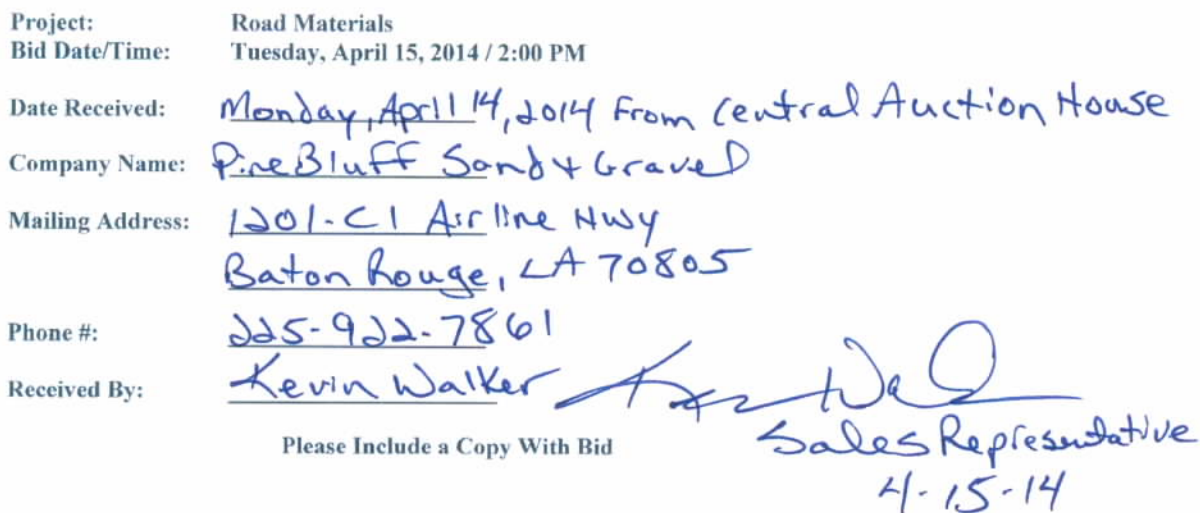 Project: Road Materials
Bid Date/Time: Tuesday, April 15, 2014 / 2:00 PM
Date Received: Monday, April 14, 2014 From Central Auction House
Company Name: Pine Bluff Sand + Gravel
Mailing Address: 1201-C1 Airline Hwy
Baton Rouge, LA 70805
Phone #: 225-922-7861
Received By: Kevin Walker
Please Include a Copy With Bid
Sales Representative
4-15-14